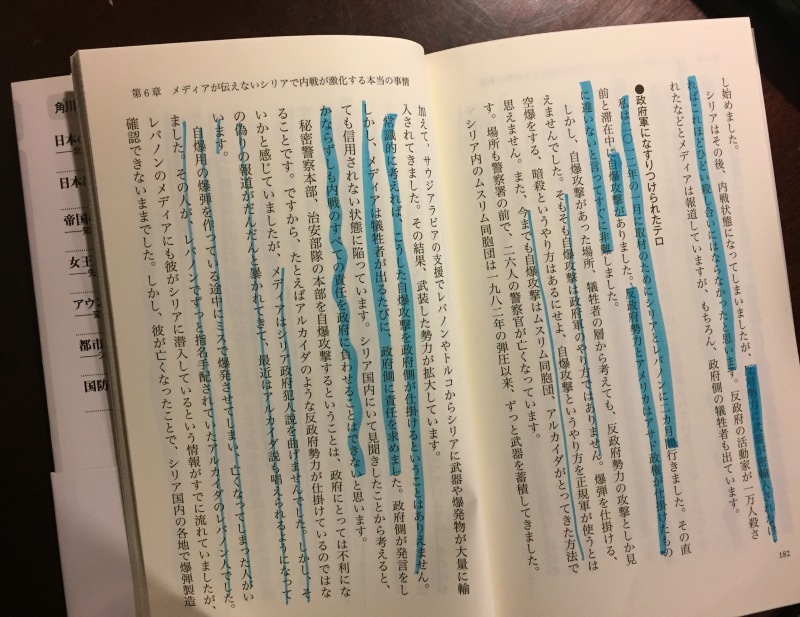 し始めました。
シリアはその後、内戦状態になってしまいましたが、
ればこれほどひどい殺し合いにはならなかったと思います。反政府の活動家が一万人殺さ
れたなどとメディアは報道していますが、もちろん、政府側の犠牲者も出ています。
●政府軍になすりつけられたテロ
私は二〇一二年の一月に取材のためにシリアとレバノンに二カ月間行きました。その直
前と滞在中に自爆攻撃がありました。反政府勢力とアメリカはアサド政権が仕掛けたもの
に違いないと言ってすぐ非難しました。
しかし、自爆攻撃があった場所、犠牲者の層から考えても、反政府勢力の攻撃としか見
えませんでした。そもそも自爆攻撃は政府軍のやり方ではありません。爆弾を仕掛ける、
空爆をする、暗殺というやり方はあるにせよ、自爆攻撃というやり方を正規軍が使うとは
思えません。また、今までも自爆攻撃はムスリム同胞団、アルカイダがとってきた方法で
す。場所も警察署の前で、二六人の警察官が亡くなっています。
シリア内のムスリム同胞団は一九八二年の弾圧以来、ずっと武器を蓄積してきました。
182
第6章 メディアが伝えないシリアで内戦が激化する本当の事情
加えて、サウジアラビアの支援でレバノンやトルコからシリアに武器や爆発物が大量に輸
入されてきました。その結果、武装した勢力が拡大しています。
常識的に考えれば、こうした自爆攻撃を政府側が仕掛けるということはありえません。
しかし、メディアは犠牲者が出るたびに、政府側に責任を求めました。政府側が発言をし
ても信用されない状態に陥っています。シリア国内にいて見聞きしたことから考えると、
かならずしも内戦のすべての責任を政府に負わせることはできないと思います。
秘密警察本部、治安部隊の本部を自爆攻撃するということは、政府にとっては不利にな
ることです。ですから、たとえばアルカイダのような反政府勢力が仕掛けているのではな
いかと感じていましたが、メディアはシリア政府犯人説を曲げませんでした。しかし、そ
の偽りの報道がだんだんと暴かれてきて、最近はアルカイダ説も唱えられるようになって
います。
自爆用の爆弾を作っている途中にミスで爆発させてしまい、亡くなってしまった人がい
ました。その人が、レバノンでずっと指名手配されていたアルカイダのレバノン人でした。
レバノンのメディアにも彼がシリアに潜入しているという情報がすでに流れていましたが、
確認できないままでした。しかし、彼が亡くなったことで、シリア国内の各地で爆弾製造
角川
日本の
日本
帝国
女王
アウン
都市
国防